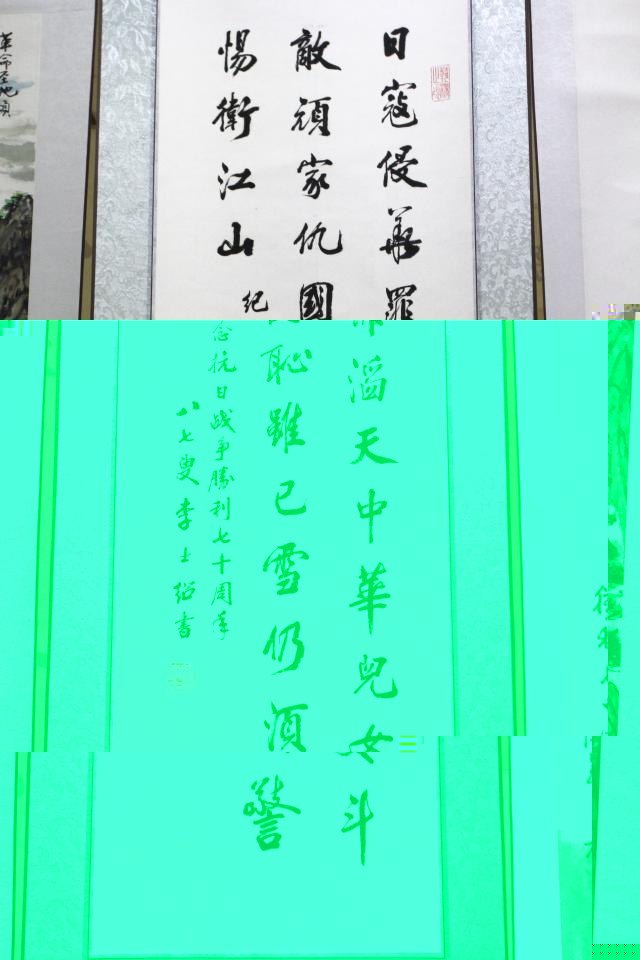 日寇侵華罪滔天中華兒女斗
敵頑家仇國恥雖已雪仍須警
惕衛江山
紀念抗日战争勝利七十周年
八七叟李士绍書
革命圣地